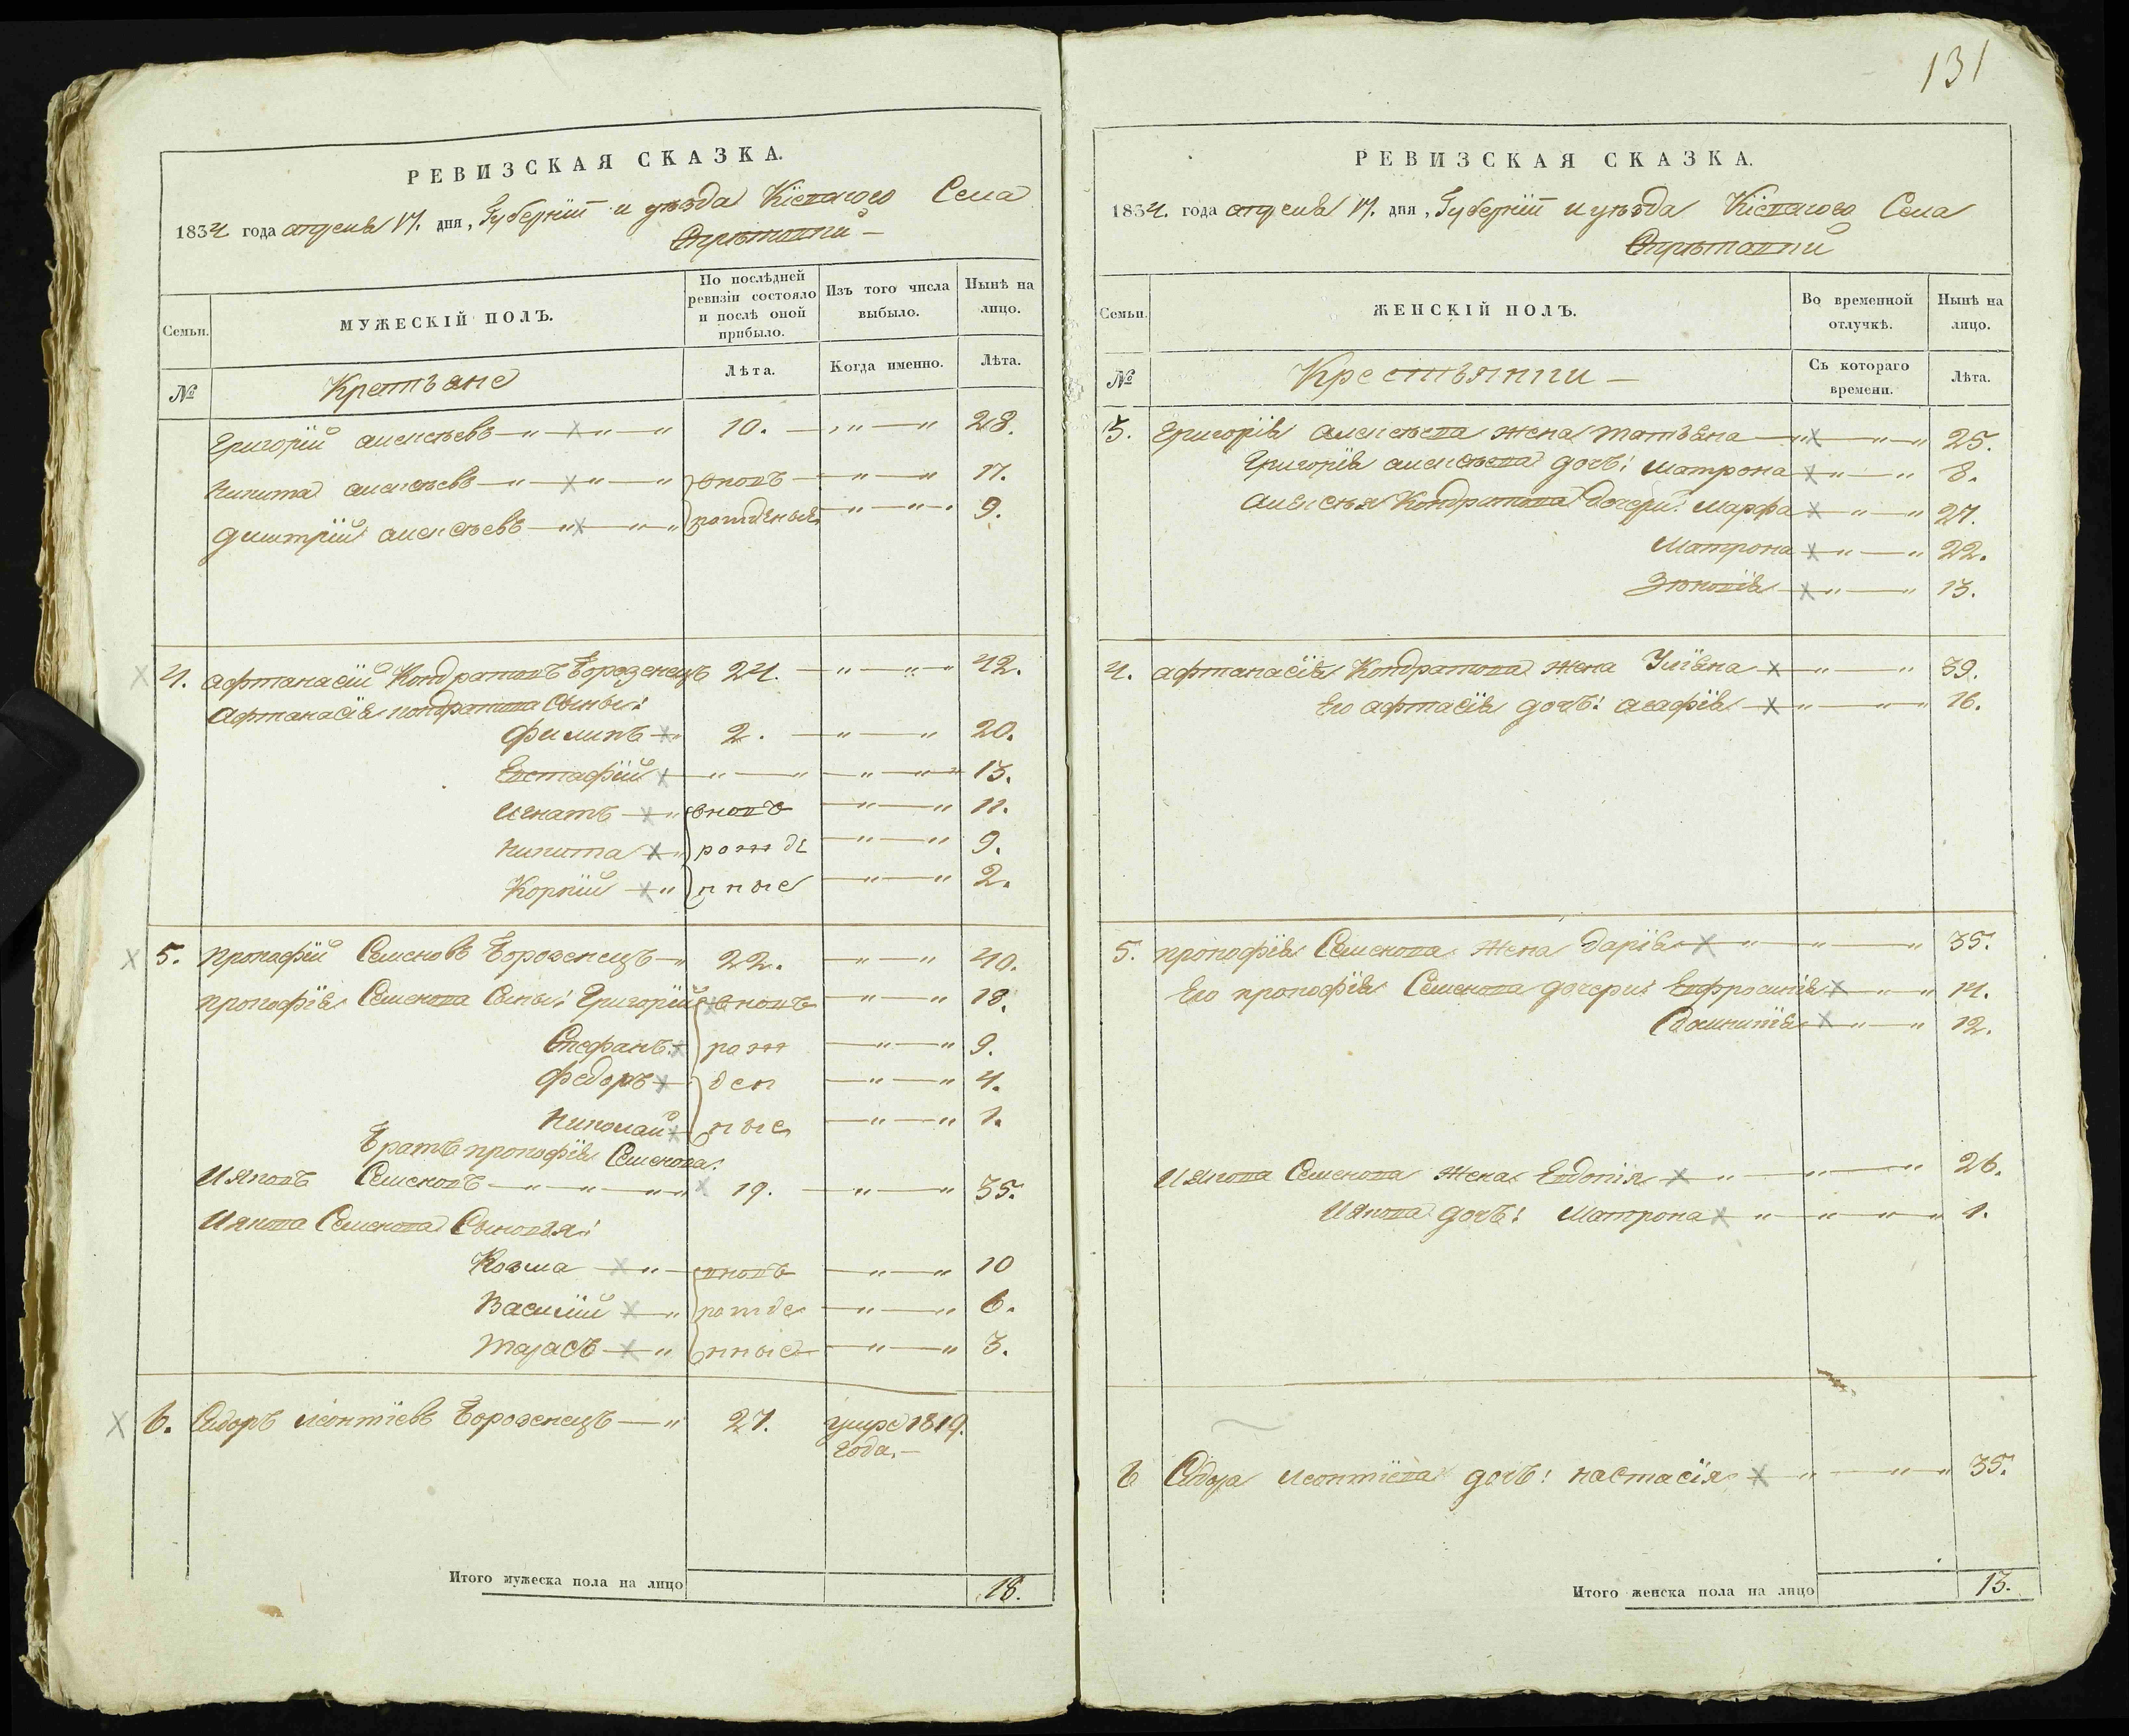 131
РЕВИЗСКАЯ СКАЗКА.
1834 года апреля 17. дня, Губернїи и уѣзда Кїевскаго Села
МУЖЕСКІЙ ПОЛЪ.
Семьи.
По послѣдней ревизіи состояло и послѣ оной прибыло.
Изъ того числа выбыло.
Нынѣ на лицо.
№
Лѣта.
Когда именно.
Лѣта.
Григорїй алексѣевъ 10. 28.
Никита алексѣевъ вновь 17.
Дмитрїй алексѣевъ рожденыя 9.
4. Афтанасїй Кондратовъ 24. 42.
Афтанасїя Кондратова Сыны:
Филипъ 2. 20.
Евстафїй 13.
Игнатъ вновь 11.
Никита рожде 9.
Корнїй нные 2.
5. Прокофїй Семеновъ 22. 40.
прокофїя Семенова Сыны: Григорїй вновь 18.
Стефанъ рож 9.
Федоръ ден 4.
Николай ные 1.
Братъ прокофїя Семенова:
Ияковъ Семеновъ 19. 35.
Иякова Семенова Сыновья:
Козма вновь 10
Василїй рожде 6.
Тарасъ нные 3.
6. Сидоръ леонтїевъ 27. умре 1819.
года.
Итого мужеска пола на лицо 18.
РЕВИЗСКАЯ СКАЗКА.
1834. года апреля 17. дня, Губернїи и уѣзда Кїевскаго Села
ЖЕНСКІЙ ПОЛЪ.
Семьи.
Во временной отлучкѣ.
Нынѣ на лицо.
№
Крестьянки
Съ котораго времени.
Лѣта.
3. Григорїя Алексѣева жена татьяна 25.
Григорїя алексѣева дочь: матрона 8.
Алексѣя Кондратова дочери: Марфа 27.
Матрона 22.
13.
4. афтанасїя Кондратова жена Улїяна 39.
Его дочь: агафїя 16.
5. прокофїя Семенова жена дарїя 35.
Его прокофїя Семенова дочери: Евфросинїя 14.
12.
Иякова Семенова жена Евдокїя 26.
Иякова дочь: Матрона 1.
6 Сидора леонтїева дочь: настасїя 35.
Итого женска пола на лицо 13.